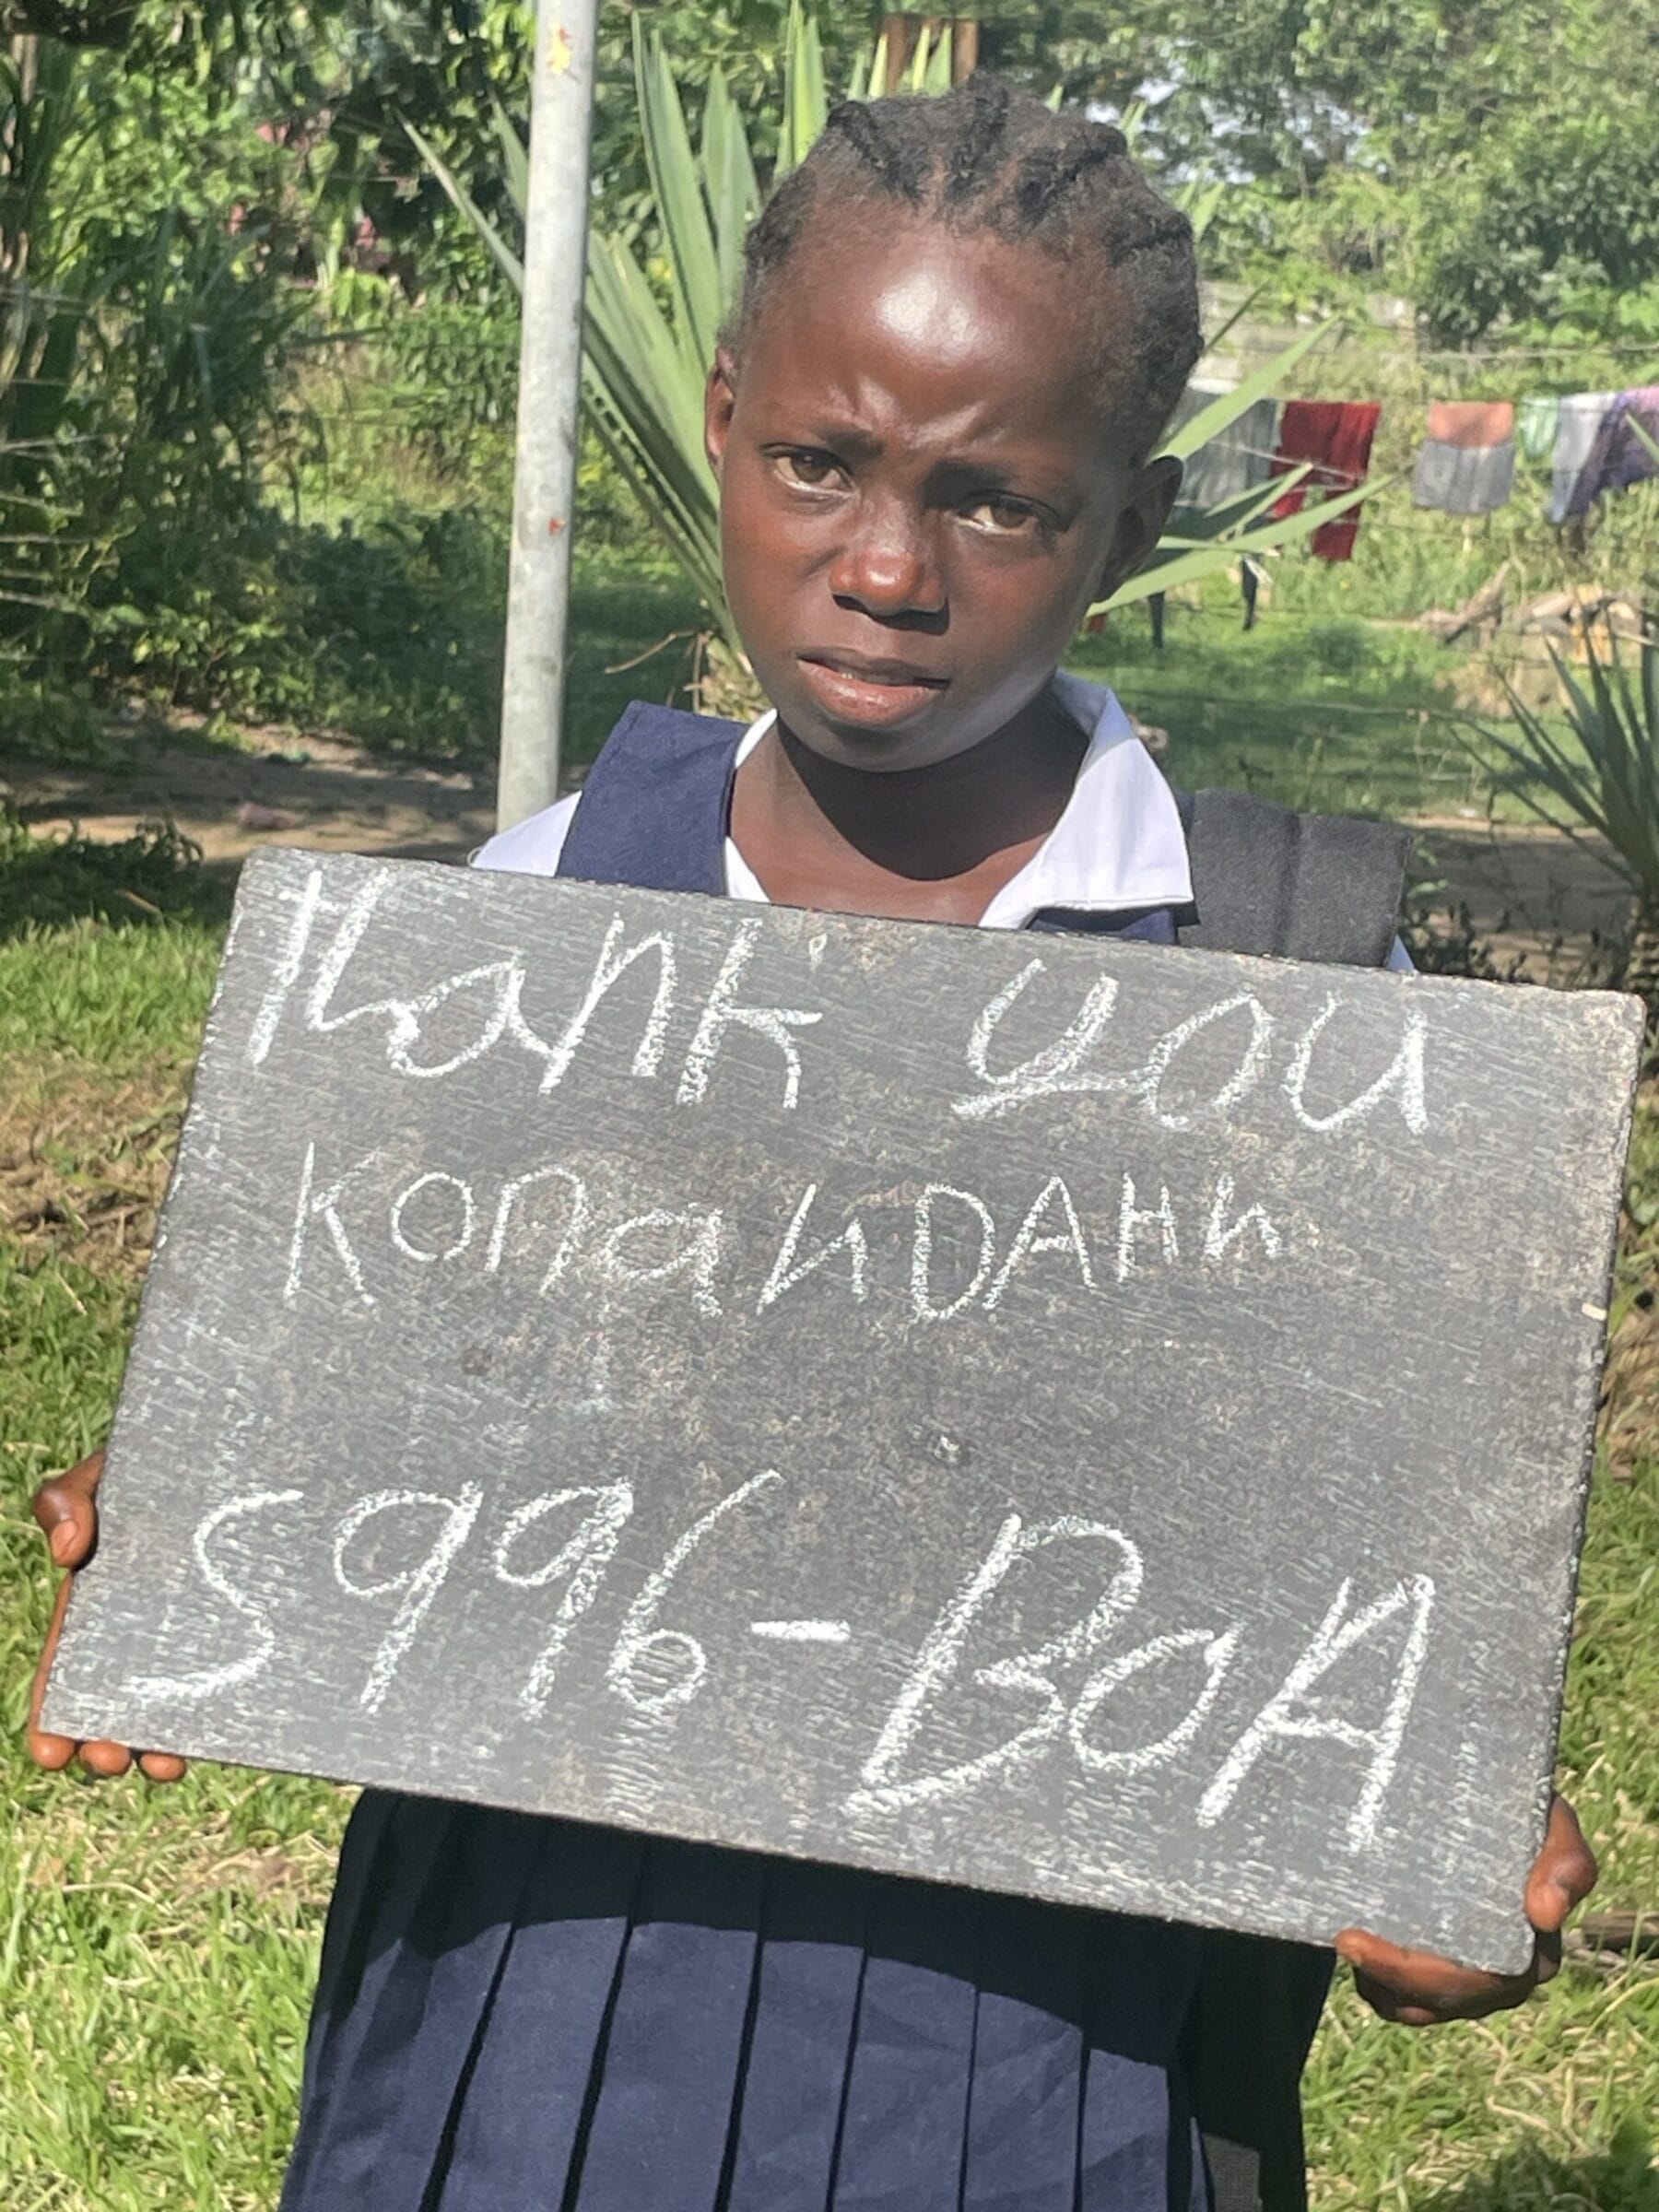 Thank you
KonanDAHn
S996-BOA